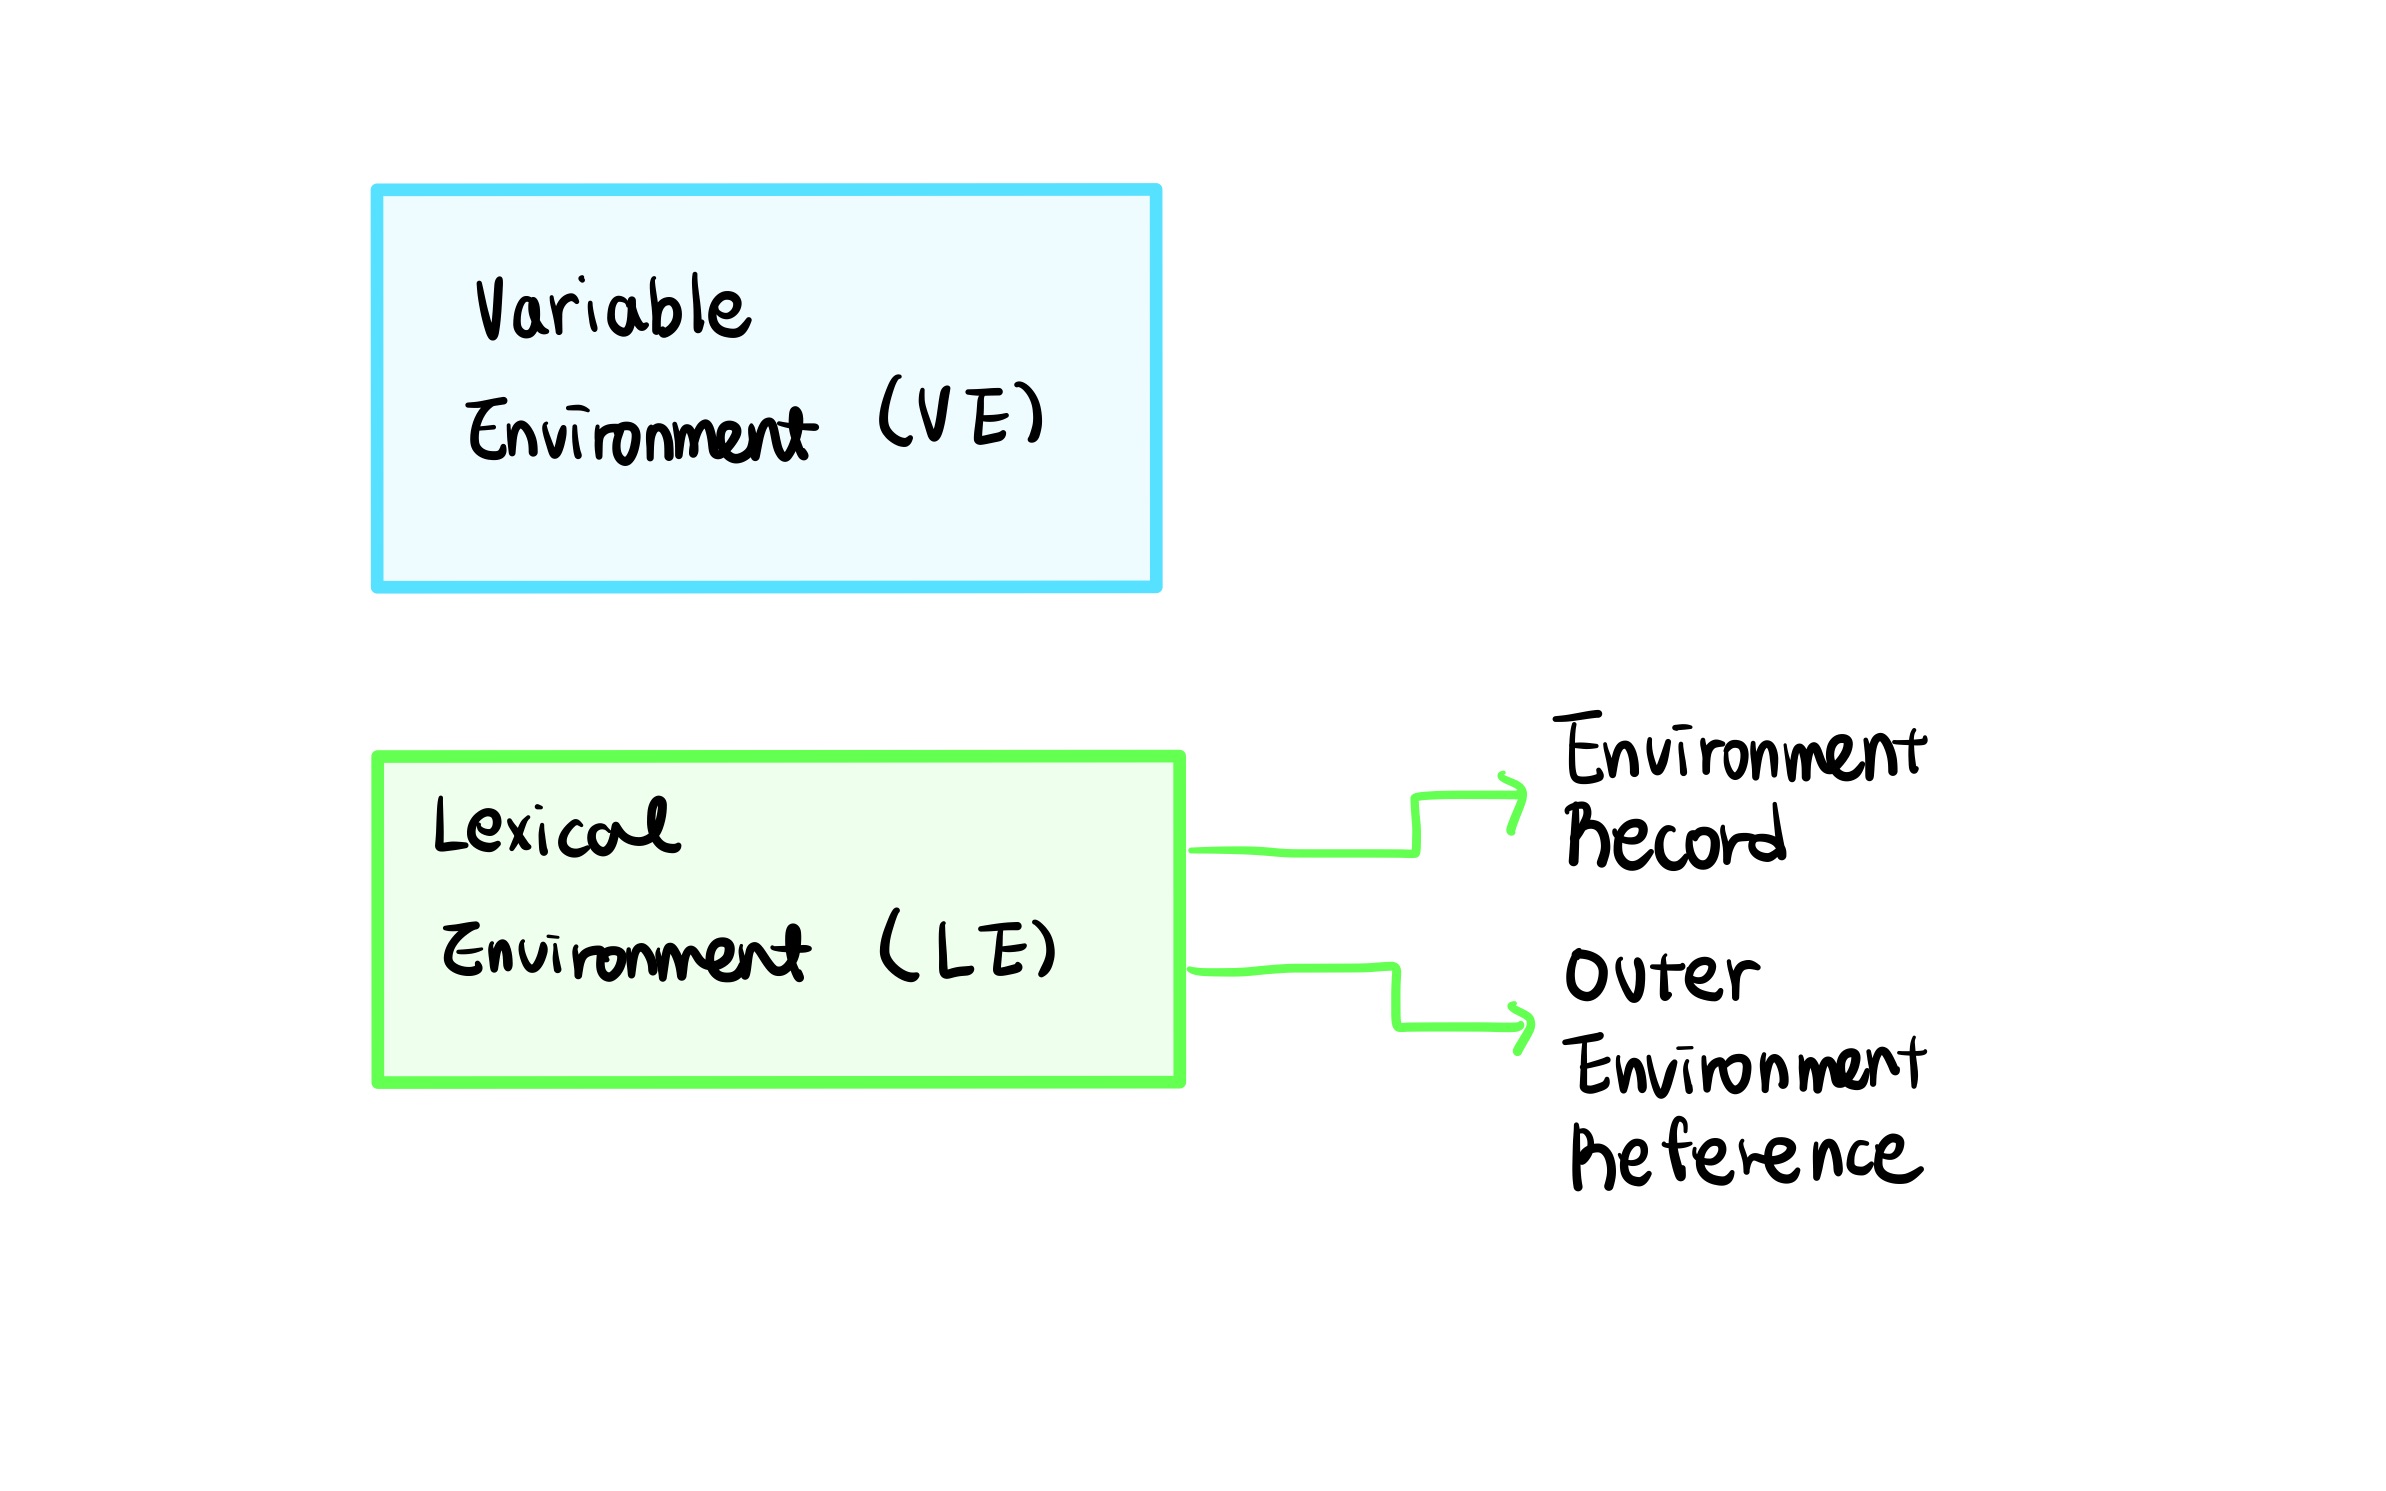 Variable
Environment (VE)
Lexical
Environment (LE)
Environment
Record
Outer
Environment
Reference